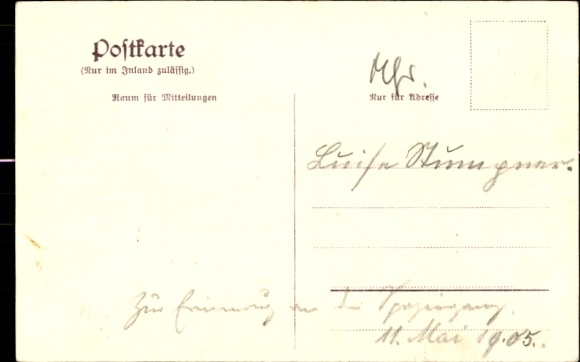 Postkarte
(Nur im Inland zulässig.)
Raum für Mitteilungen
Nur für Adresse
Luise Stumpner.
Zur Erinnerung an den Spaziergang.
11. Mai 1905.